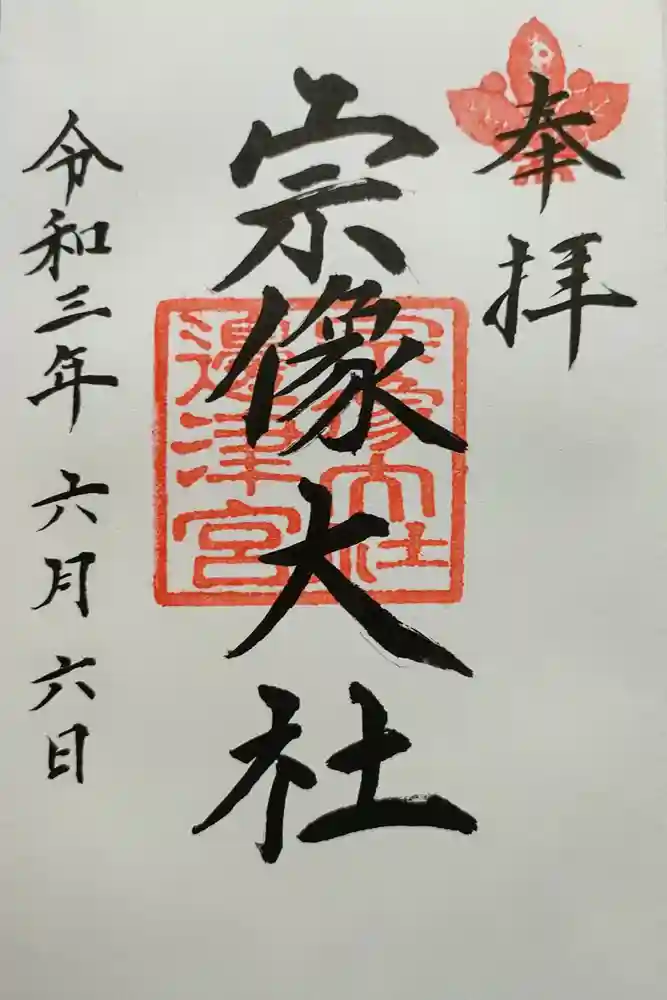 奉拝
宗像大社
宗像大社
邊津宮
令和三年六月六日